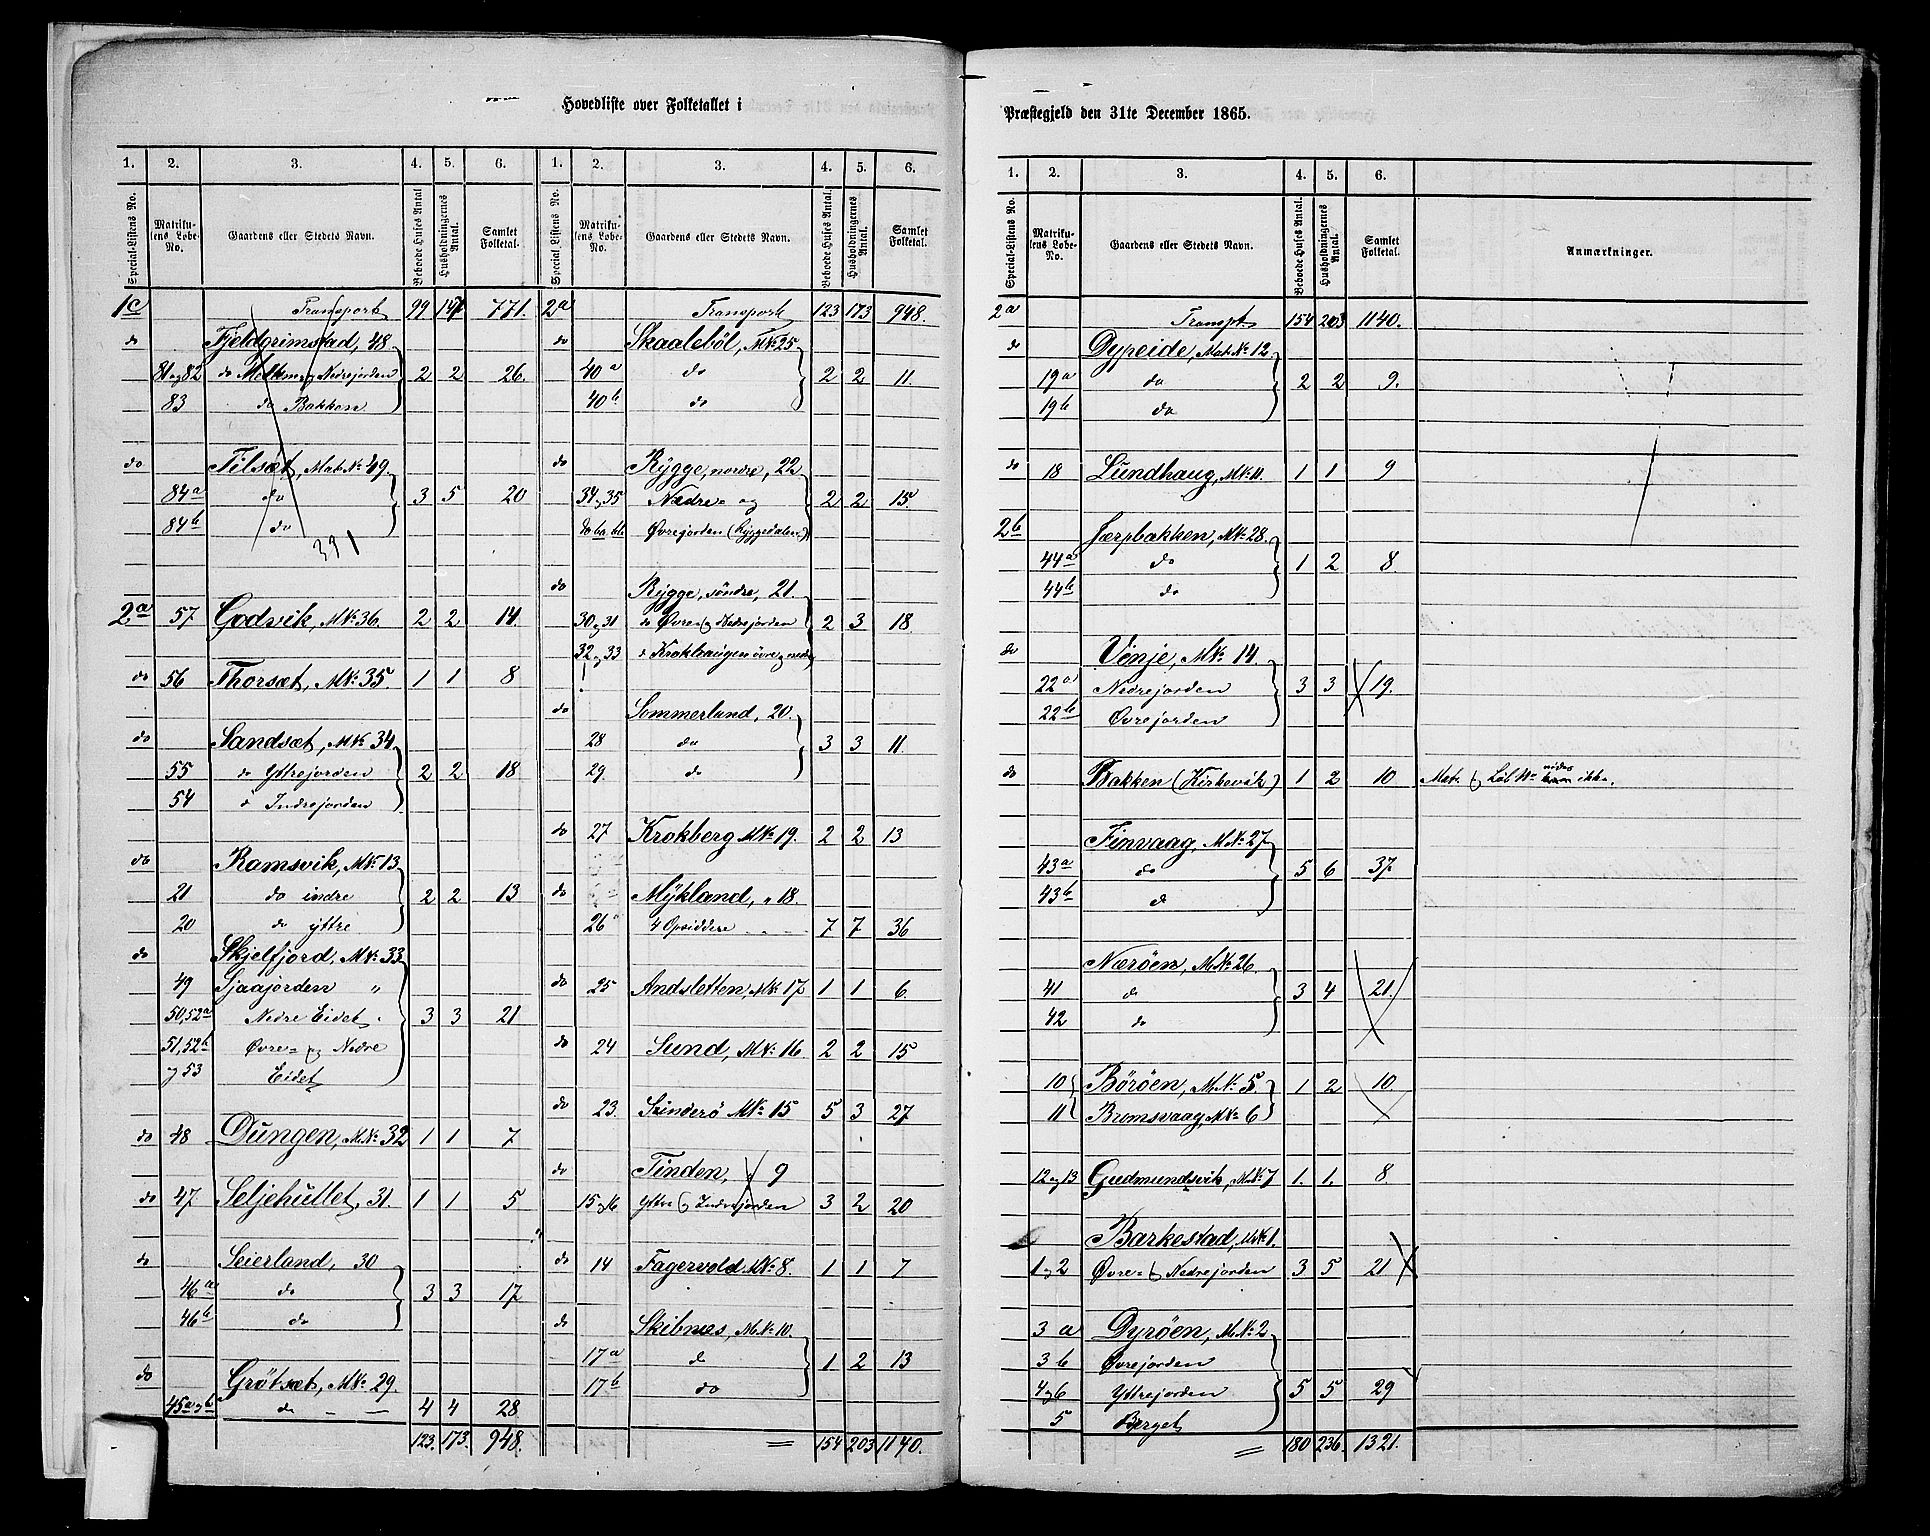 Hovedliste over Folketallet i
1. 2. 3. 4. 5. 6. 1. 2. 3. 4. 5. 6.
Special-Listens No. Matrikulens Løbe-No. Gaardens eller Stedets Navn. Beboede Huses Antal Husholdningernes Antal. Samlet Folketal. Special Listens No. Matrikulens Løbe-No. Gaardens eller Stedets Navn. Beboede Huses Antal. Husholdningernes Antal. Samlet Folketal.
1c Transport 99 141 771.
do Fjeldgrimstad, 48
81 og 82 do Nedrejorden 2 2 26.
83 do Bakken
do Tilsæt, Mat No 49.
84a do 3 5 20
84b do
391
2a 57 Godvik, MNo 36. 2 2 14.
do 56 Thorsæt, MNo 35. 1 1 8
do Sandsæt, MNo 34.
55 do Yttrejorden 2 2 18
54 d Indrejorden
do Ramsvik, MNo 13
21 do indre 2 2 13
20 do yttre
do Skjelfjord, MNo 33
49 Sjaajorden "
50, 52a Nedre Eidet 3 3 21
51, 52b Øvre- og Nedre
og 53 Eidet
do 48 Dungen, MNo 32 1 1 7
do 47. Seljehullet, 31. 1 1 5
do Seierland, 30
46a do 3 3 17
46b do
do Grötsæt, MNo 29.
45a og b do — — 4 4 28
123. 173. 948.
2a Transport 123 173 948.
do Skaaleböl, MNo 25
40a do 2 2 11.
40b do
do Rygge, nordre, 22
34 og 35 Nedre- og 2 2 15.
Øvrejorden (Ryggedalen)
do Rygge, söndre, 21.
30 og 31 do Øvre- og Nedrejorden 2 3 18
32 og 33 d Krokhaugen övre og nedre
do Sommerland, 20.
28 do 3 3 11.
29. do
do 27 Krokberg MNo 19. 2 2 13
do Mykland, " 18.
26 4 Opsiddere 7 7 36
do 25 Andsletten, MNo 17 1 1 6.
do 24 Sund, MNo 16 2 2 15
do 23. MNo 15 5 3 27
do Tinden, 9
15 og 16 Yttre og Indrejorden 3 2 20
do 14 Fagervold MNo 8. 1 1 7
do Skibnes, MNo 10.
17a do 1 2 13
17b do
= 154 203 1140.
Præstegjeld den 31te December 1865.
1. 2. 3. 4. 5. 6.
Special-Listens No. Matrikulens Løbe-No. Gaardens eller Stedets Navn. Beboede Huses Antal. Husholdningernes Antal. Samlet Folketal. Anmærkninger.
2a Transpt 154 203 1140.
do Dypeide, Mat No 12
19a do 2 2 9.
19b do
do 18 Lundhaug, MNo 11. 1 1 9
2b Jærpbakken, MNo 28.
44a do 1 2 8.
44b do
do Vinje, MNo 14.
22a Nedrejorden 3 3 19.
22b Øvrejorden
do Bakken (Kirkevik) 1 2 10 Mat. og Löb No vides ikke.
Finvaag, MNo 27
43a do 5 6 37.
43b d
Næröen, MNo 26
41 do 3 4 21.
42 do
10 Böröen, MNo 5. 1 2 10.
11 Bromsvaag, MNo 6
12 og 13 Gudmundsvik, MNo 7 1. 1. 8.
Barkestad, MNo 1.
1 og 2 Øvre- og Nedrejorden 3 5 21
3 a Dyröen, MNo 2
3 b Øvrejorden
4 og 6 Yttrejorden 5 5 29
5 Berget
= 180 236. 1321.